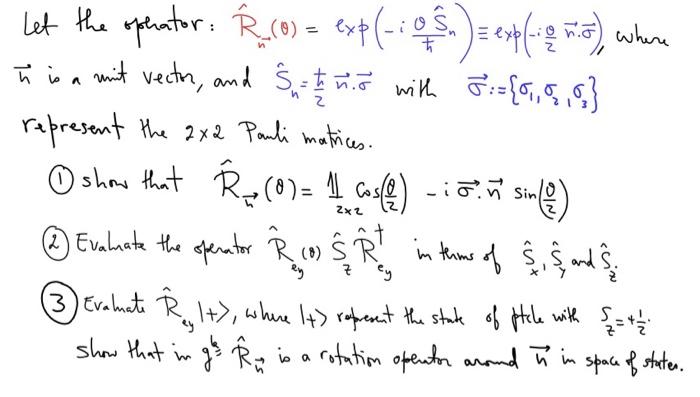 Let the operator: R̂_n⃗ (θ) = exp(-i θ Ŝ_n / ħ) ≡ exp(-i θ/2 n⃗.σ⃗), where
n⃗ is a unit vector, and Ŝ_n = ħ/2 n⃗.σ⃗ with σ⃗ := {σ₁, σ₂, σ₃}
represent the 2x2 Pauli matrices.
① show that R̂_n⃗ (θ) = 𝟙_2x2 Cos(θ/2) - i σ⃗.n⃗ sin(θ/2)
② Evaluate the operator R̂_ey (θ) Ŝ_z R̂†_ey in terms of Ŝ_x, Ŝ_y and Ŝ_z.
③ Evaluate R̂_ey |+>, where |+> represent the state of ptcle with S_z = +1/2.
show that in g^al R̂_n⃗ is a rotation operator around n⃗ in space of states.